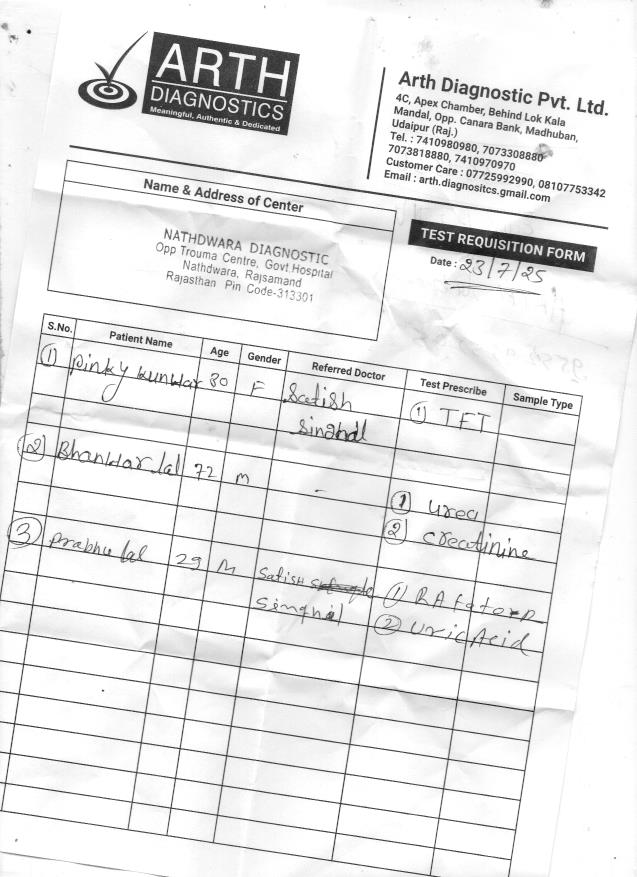 ARTH
DIAGNOSTICS
Meaningful, Authentic & Dedicated
Arth Diagnostic Pvt. Ltd.
4C, Apex Chamber, Behind Lok Kala
Mandal, Opp. Canara Bank, Madhuban,
Udaipur (Raj.)
Tel. : 7410980980, 7073308880
7073818880, 7410970970
Customer Care : 07725992990, 08107753342
Email : arth.diagnositcs.gmail.com
Name & Address of Center
NATHDWARA DIAGNOSTIC
Opp Trouma Centre, Govt.Hospital
Nathdwara, Rajsamand
Rajasthan Pin Code-313301
TEST REQUISITION FORM
Date : 23/7/25
S.No. Patient Name Age Gender Referred Doctor Test Prescribe Sample Type
1 Pinky kunwar 30 F Satish 1 TFT
Singhal
2 Bhanwar lal 72 M - 1 Urea
2 Creatinine
3 Prabhu lal 29 M Satish 1 RA Fatorn
Singhal 2 Uric Acid